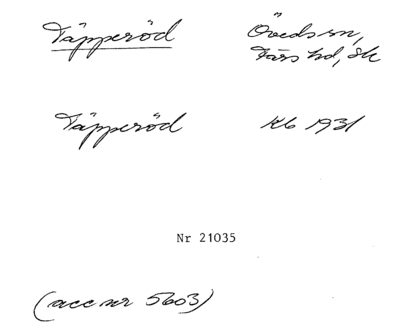 Täpperöd Öveds sn,
Färs hd, Sk
Täpperöd Kb 1931
Nr 21035
(acc nr 5603)